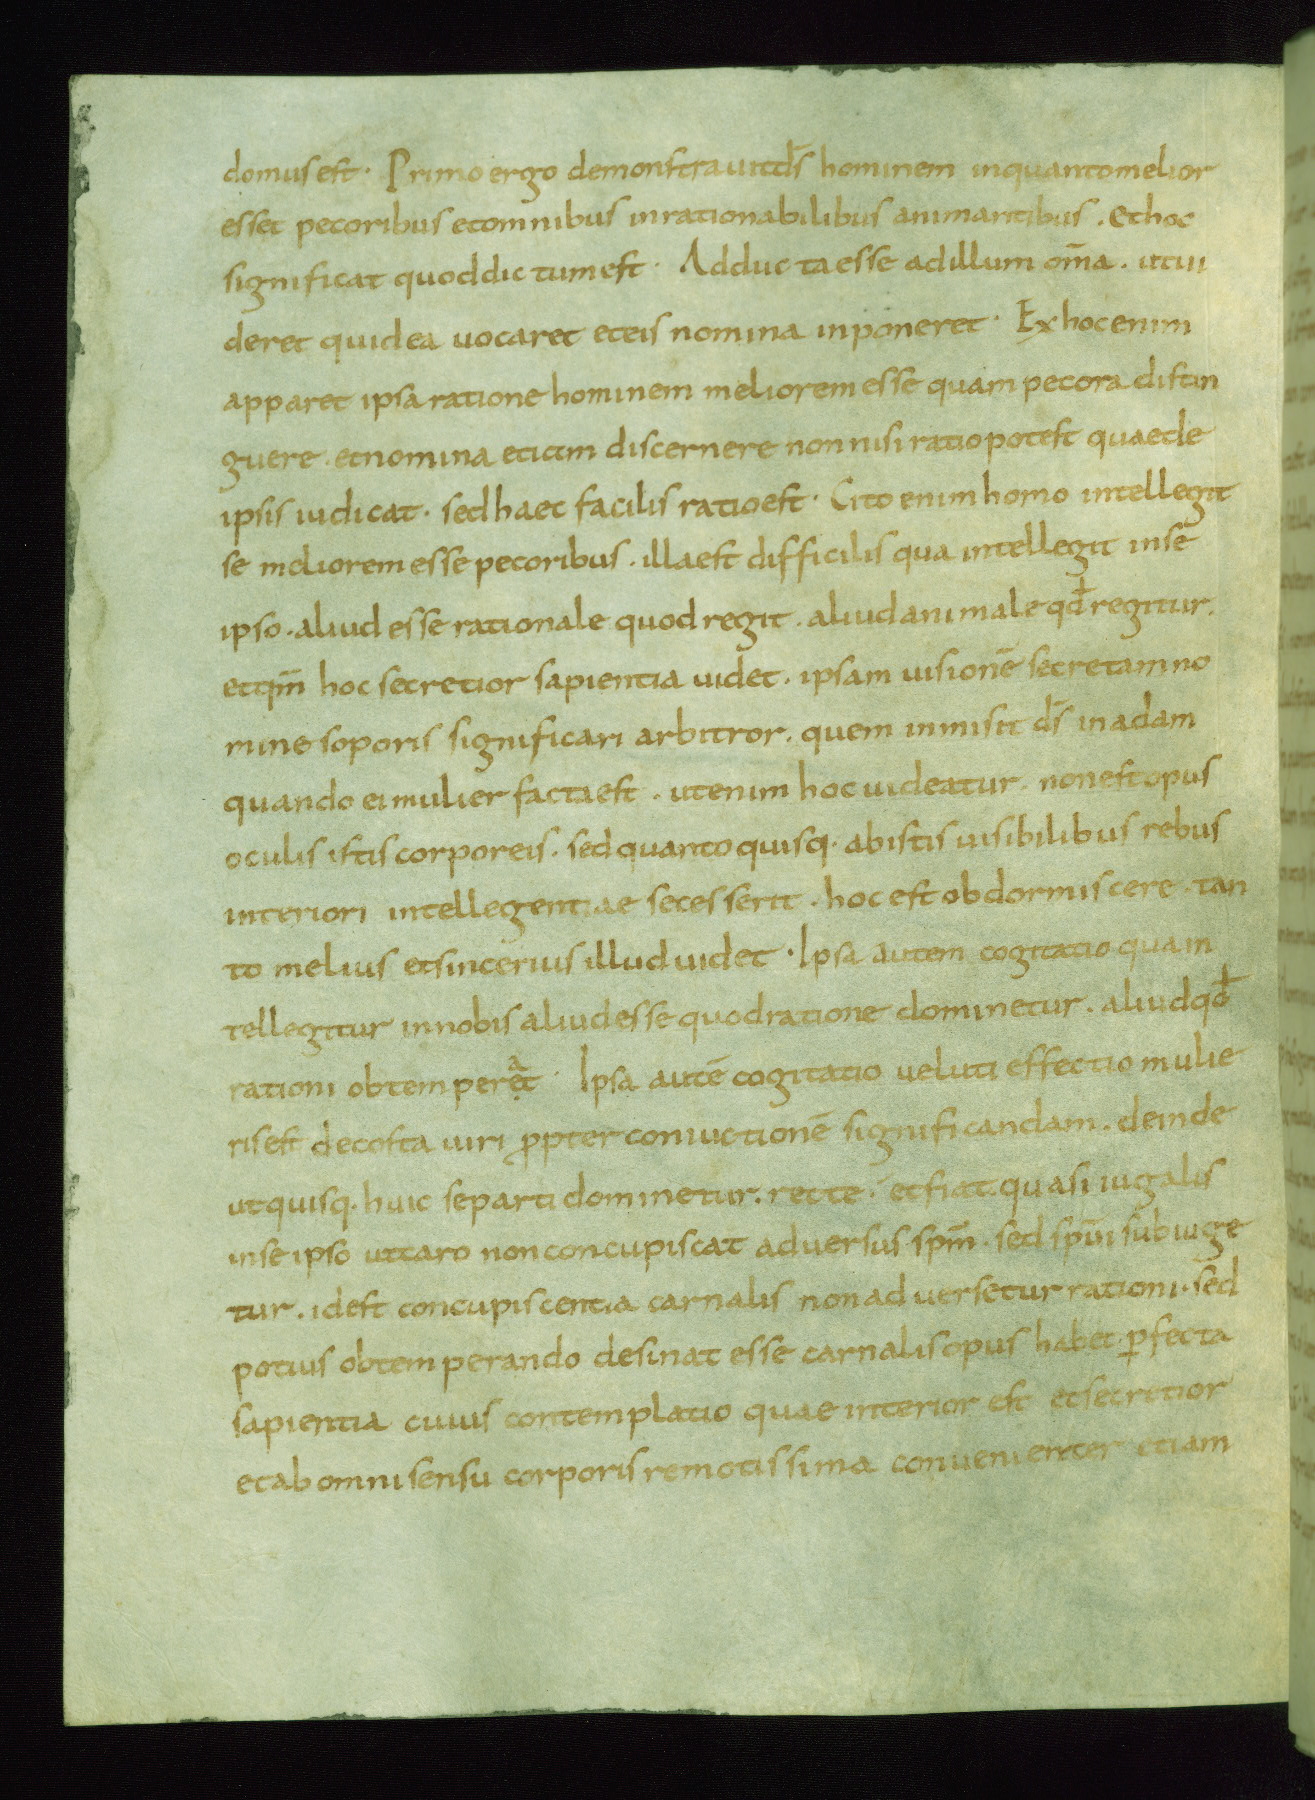 domus est. Primo ergo demonstrauit d̄s hominem inquanto melior
esset pecoribus et omnibus inrationabilibus animantibus. et hoc
significat quod dictum est. Adducta esse ad illum om̄a. ut ui
deret quid ea uocaret et eis nomina inponeret. Ex hoc enim
apparet ipsa ratione hominem meliorem esse quam pecora distin
guere. et nomina etiam discernere non nisi ratio potest quae de
ipsis iudicat. sed haec facilis ratio est. Cito enim homo intellegit
se meliorem esse pecoribus. illa est difficilis qua intellegit in se
ipso. aliud esse rationale quod regit. aliud animale qđ regitur.
et qm̄ hoc secretior sapientia uidet. ipsam uisionē secretam no
mine soporis significari arbitror. quem inmisit d̄s in adam
quando ei mulier facta est. ut enim hoc uideatur. non est opus
oculis istis corporeis. sed quanto quisq. ab istis uisibilibus rebus
interiori intellegentiae secesserit. hoc est obdormiscere. tan
to melius et sincerius illud uidet. Ipsa autem cogitatio qua in
tellegitur in nobis aliud esse quod ratione dominetur. aliud qđ
rationi obtemperet. Ipsa autē cogitatio ueluti effectio mulie
ris est de costa uiri p̄pter coniuctionē significandam. deinde
ut quisq. huic se parti dominetur. recte. et fiat quasi iugalis
in se ipso ut caro non concupiscat aduersus sp̄m. sed sp̄ui subiuge
tur. id est concupiscentia carnalis non aduersetur rationi. sed
potius obtemperando desinat esse carnalis opus habet p̄fecta
sapientia cuius contemplatio quae interior est et secritior
et ab omni sensu corporis remotissima conuenienter etiam